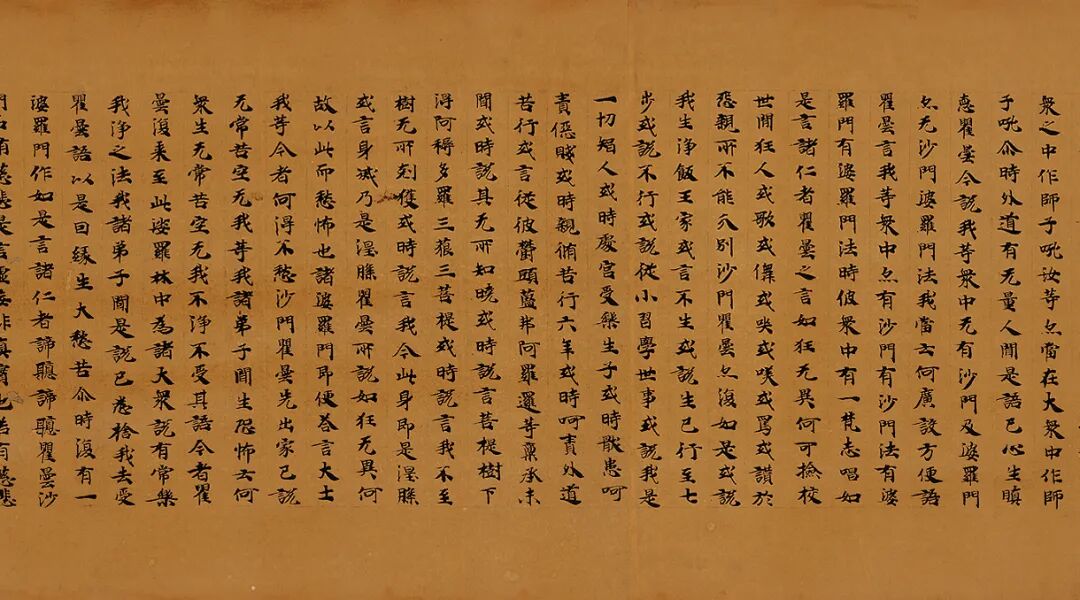 衆之中作師子吼汝等亦當在大衆中作師
子吼尒時外道有无量人聞是語已心生瞋
恚瞿曇今說我等衆中无有沙門及婆羅門
亦无沙門婆羅門法我當云何廣設方便語
瞿曇言我等衆中亦有沙門有沙門法有婆
羅門有婆羅門法時彼衆中有一梵志唱如
是言諸仁者瞿曇之言如狂无異何可撿挍
世間狂人或歌或儛或哭或笑或罵或讚於
怨親所不能分別沙門瞿曇亦復如是或說
我生淨飯王家或言不生或說生已行至七
步或說不行或說從小習學世事或說我是
一切智人或時處宮受樂生子或時猒患呵
責惡賤或時親脩苦行六年或時呵責外道
苦行或言從彼欝頭藍弗阿羅邏等稟承未
聞或時說其无所知曉或時說言菩提樹下
得阿耨多羅三藐三菩提或時說言我不至
樹无所剋獲或時說言我今此身即是涅槃
或言身滅乃是涅槃瞿曇所說如狂无異何
故以此而愁怖也諸婆羅門即便荅言大士
我等今者何得不愁沙門瞿曇先出家已說
无常苦空无我等我諸弟子聞生恐怖云何
衆生无常苦空无我不淨不受其語今者瞿
曇復来至此娑羅林中為諸大衆說有常樂
我淨之法我諸弟子聞是說已悉捨我去受
瞿曇語以是因緣生大愁苦尒時復有一
婆羅門作如是言諸仁者諦聽諦聽瞿曇沙
門名有慈悲是言虛妄非真實也若有慈悲